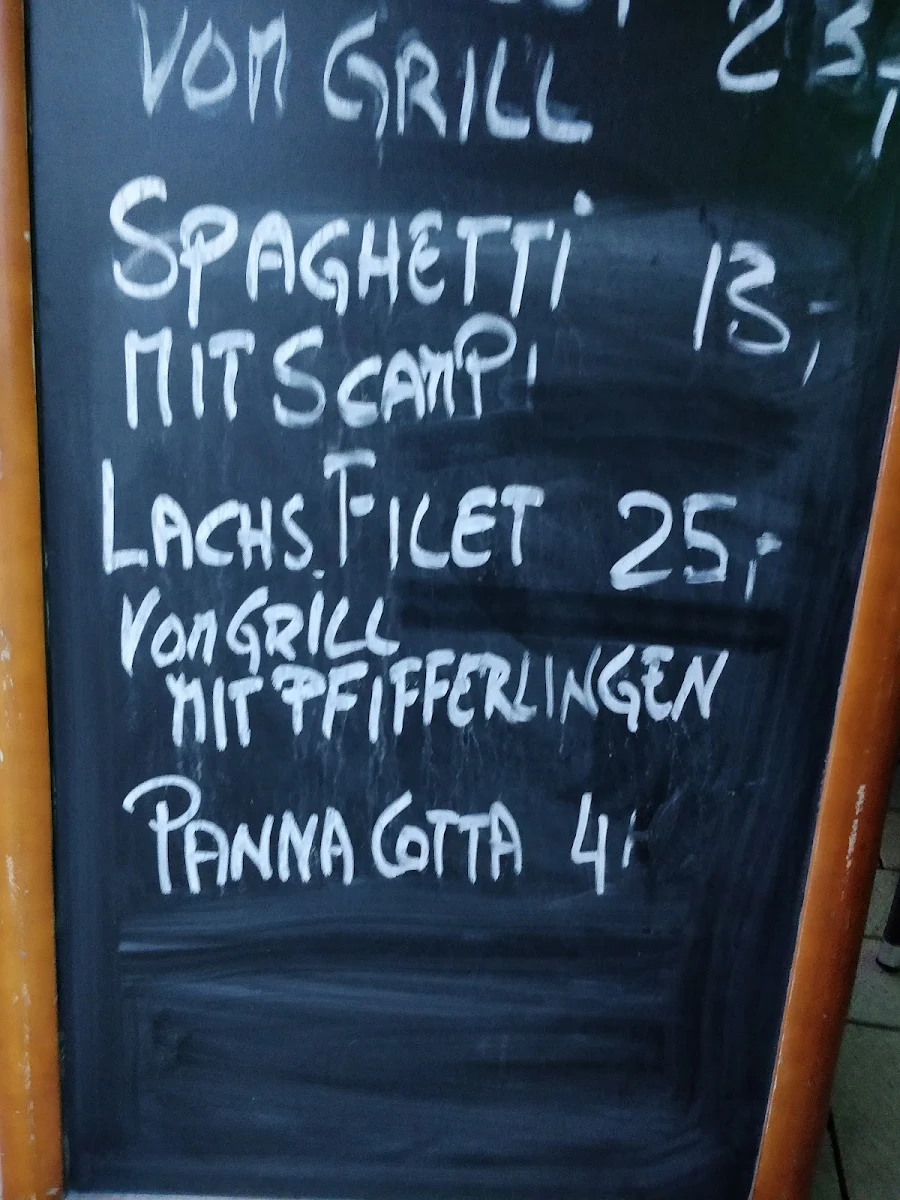 VOM GRILL 23,-
SPAGHETTI 13,-
MIT SCAMPI
LACHS FILET 25,-
VOM GRILL
MIT PFIFFERLINGEN
PANNA COTTA 4,-